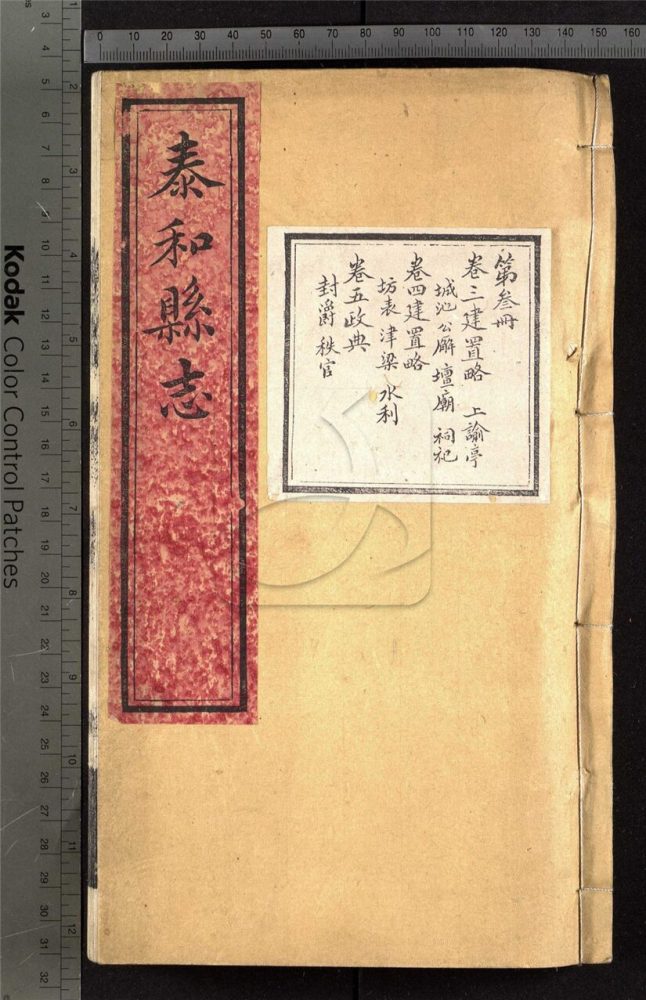 泰和縣志
第叁冊
卷三建置略 上諭亭
城池 公廨 壇廟 祠祀
卷四建置略
坊表 津梁 水利
卷五政典
封爵 秩官
Kodak Color Control Patches
0 10 20 30 40 50 60 70 80 90 100 110 120 130 140 150 160
3 4 5 6 7 8 9 10 11 12 13 14 15 16 17 18 19 20 21 22 23 24 25 26 27 28 29 30 31 32
1 2 3 4 5 6 7 8 9 10 11 12